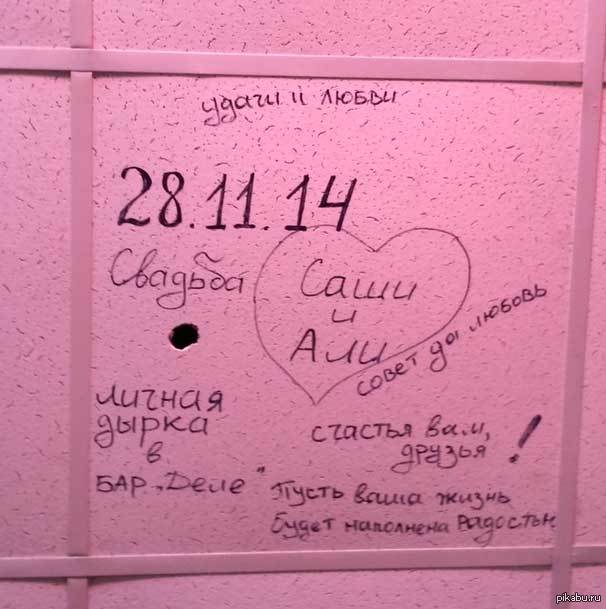 удачи и любви
28.11.14
Свадьба
Саши
и
Али
совет да любовь
личная
дырка
в
БАР „Деле"
счастья вам,
друзья !
Пусть ваша жизнь
будет наполнена радостью
pikabu.ru